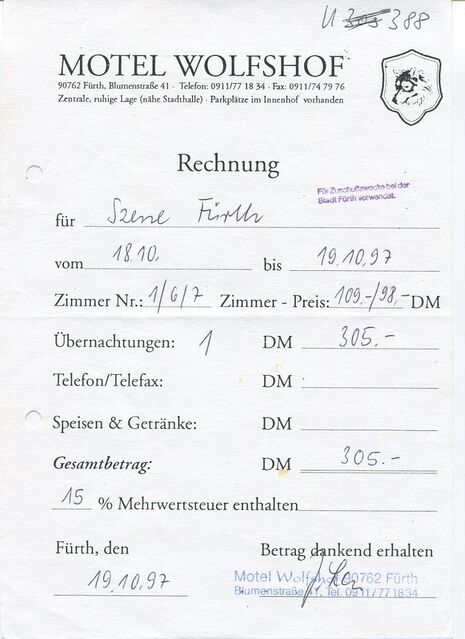 U 305 388
MOTEL WOLFSHOF
90762 Fürth, Blumenstraße 41 · Telefon: 0911/77 18 34 · Fax: 0911/74 79 76
Zentrale, ruhige Lage (nähe Stadthalle) · Parkplätze im Innenhof vorhanden
Rechnung
Für Zuschußzwecke bei der
Stadt Fürth verwendet.
für Szene Fürth
vom 18.10. bis 19.10.97
Zimmer Nr.: 1/6/7 Zimmer - Preis: 109,-/98,- DM
Übernachtungen: 1 DM 305.-
Telefon/Telefax: DM
Speisen & Getränke: DM
Gesamtbetrag: DM 305.-
15 % Mehrwertsteuer enthalten
Fürth, den Betrag dankend erhalten
19.10.97
Motel Wolfshof 90762 Fürth
Blumenstraße 41, Tel. 0911/771834